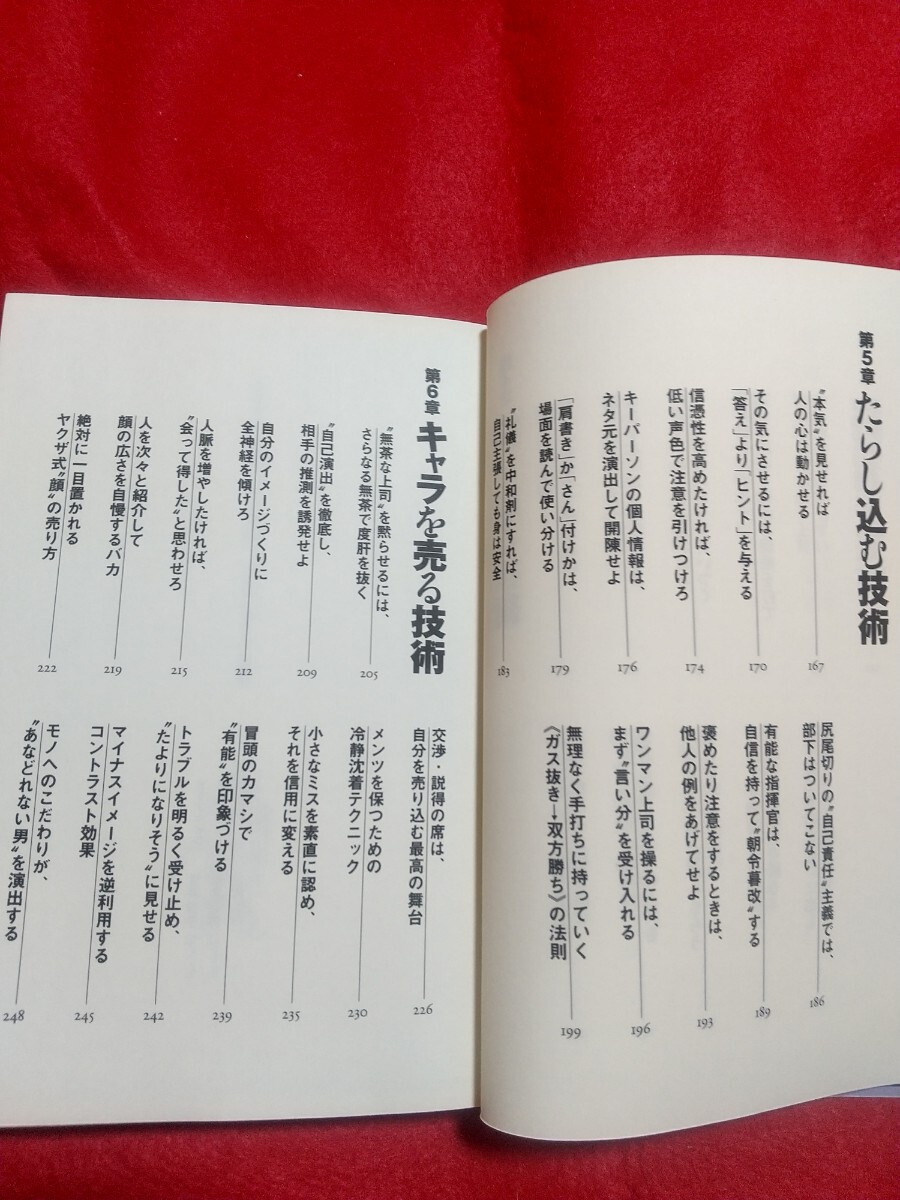 第5章 たらし込む技術
〝本気〟を見せれば
人の心は動かせる
167
その気にさせるには、
「答え」より「ヒント」を与える
170
信憑性を高めたければ、
低い声色で注意を引きつけろ
174
キーパーソンの個人情報は、
ネタ元を演出して開陳せよ
176
「肩書き」か「さん」付けかは、
場面を読んで使い分ける
179
〝礼儀〟を中和剤にすれば、
自己主張しても身は安全
183
尻尾切りの〝自己責任〟主義では、
部下はついてこない
186
有能な指揮官は、
自信を持って〝朝令暮改〟する
189
褒めたり注意をするときは、
他人の例をあげてせよ
193
ワンマン上司を操るには、
まず〝言い分〟を受け入れる
196
無理なく手打ちに持っていく
〈ガス抜き→双方勝ち〉の法則
199
第6章 キャラを売る技術
〝無茶な上司〟を黙らせるには、
さらなる無茶で度肝を抜く
205
〝自己演出〟を徹底し、
相手の推測を誘発せよ
209
自分のイメージづくりに
全神経を傾けろ
212
人脈を増やしたければ、
〝会って得した〟と思わせろ
215
人を次々と紹介して
顔の広さを自慢するバカ
219
絶対に一目置かれる
ヤクザ式〝顔〟の売り方
222
交渉・説得の席は、
自分を売り込む最高の舞台
226
メンツを保つための
冷静沈着テクニック
230
小さなミスを素直に認め、
それを信用に変える
235
冒頭のカマシで
〝有能〟を印象づける
239
トラブルを明るく受け止め、
〝たよりになりそう〟に見せる
242
マイナスイメージを逆利用する
コントラスト効果
245
モノへのこだわりが、
〝あなどれない男〟を演出する
248